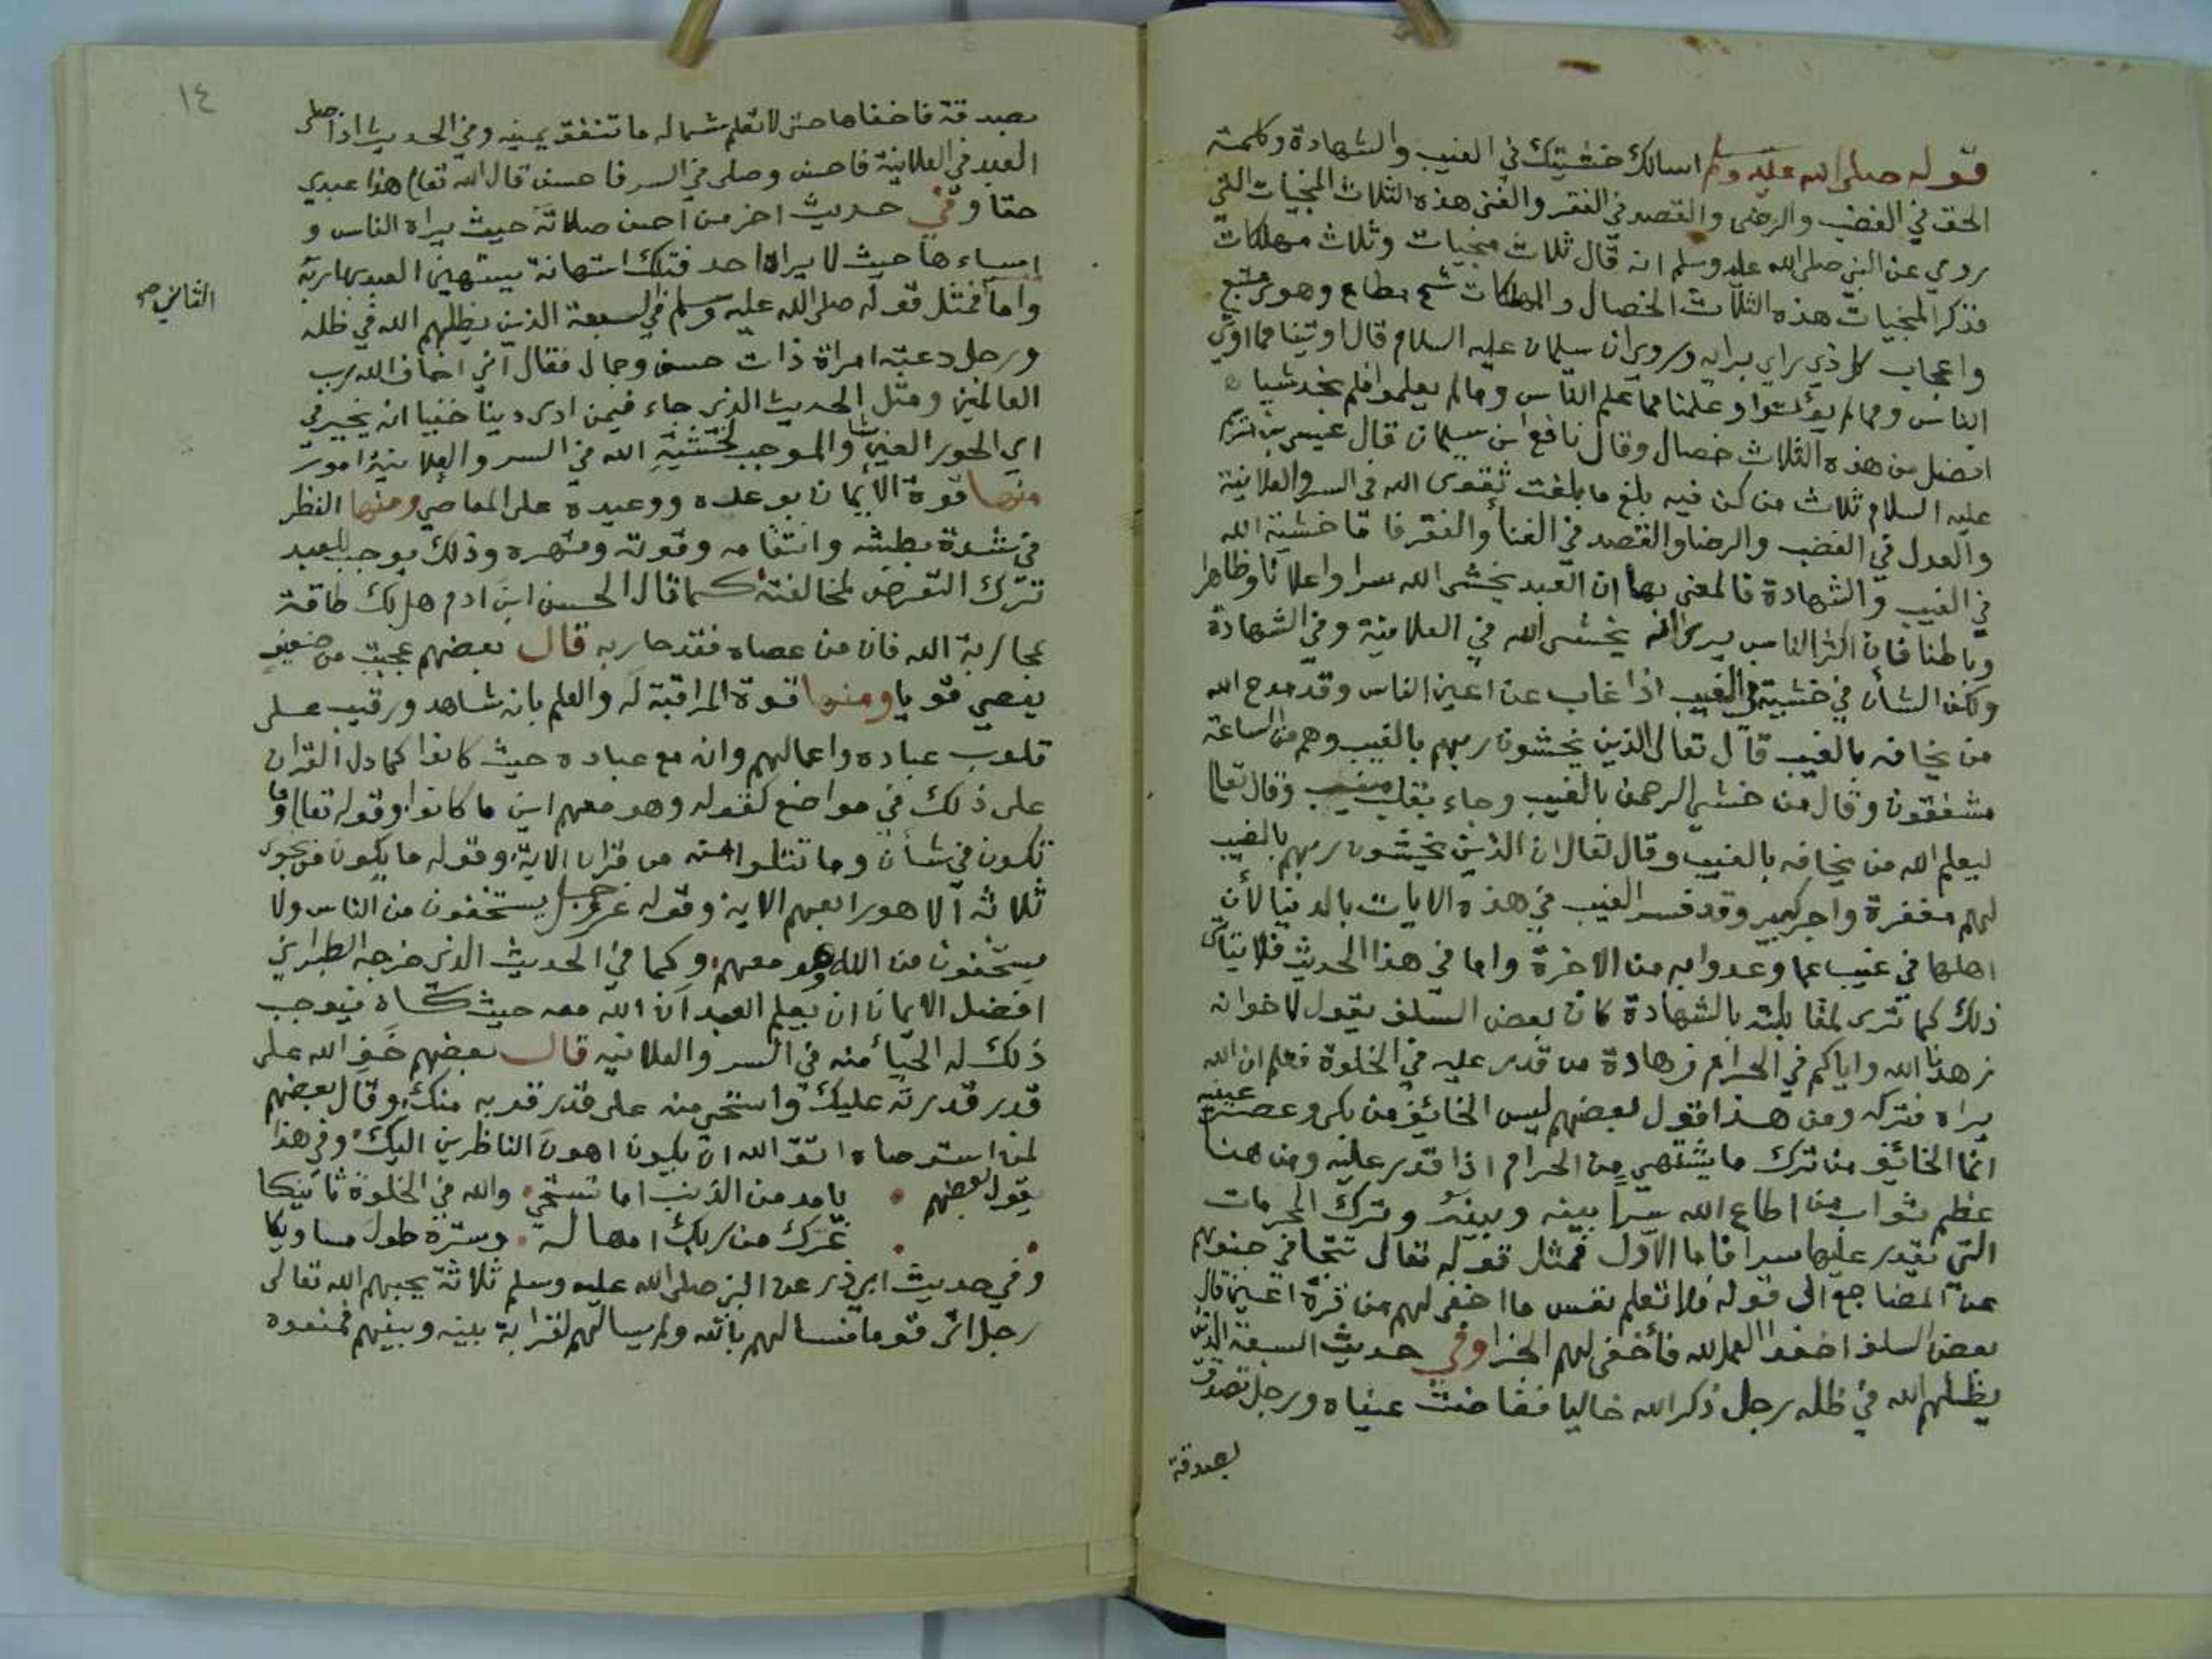 قوله صلى الله عليه وسلم اسالك خشيتك في الغيب والشهادة وكلمة
الحق في الغضب والرضى والقصد في الفقر والغنى هذه الثلاث المنجيات التي
روي عن النبي صلى الله عليه وسلم انه قال ثلاث منجيات وثلاث مهلكات
فذكر المنجيات هذه الثلاث الخصال والمهلكات شح مطاع وهوى متبع
واعجاب كل ذي راي برايه وروي ان سليمان عليه السلام قال اوتينا مما اوتي
الناس ومما لم يؤتوا وعلمنا مما علم الناس ومما لم يعلموا فلم نجد شيا
افضل من هذه الثلاث خصال وقال نافع ابن سليمان قال عيسى بن مريم
عليه السلام ثلاث من كن فيه بلغ ما بلغت تقوى الله في السر والعلانية
والعدل في الغضب والرضا والقصد في الغنا والفقر فاما خشية الله
في الغيب والشهادة فالمعنى بها ان العبد يخشى الله سرا واعلانا وظاهرا
وباطنا فان اكثر الناس يرى انه يخشى الله في العلانية وفي الشهادة
ولكن الشأن في خشية في الغيب اذا غاب عن اعين الناس وقد مدح الله
من يخافه بالغيب قال تعالى الذين يخشون ربهم بالغيب وهم من الساعة
مشفقون وقال من خشي الرحمن بالغيب وجاء بقلب منيب وقال تعالى
ليعلم الله من يخافه بالغيب وقال تعالى ان الذين يخشون ربهم بالغيب
لهم مغفرة واجر كبير وقد فسر الغيب في هذه الايات بالدنيا لأن
اهلها في غيب عما وعدوا به من الاخرة واما في هذا الحديث فلا يتأتى
ذلك كما ترى لمقابلته بالشهادة كان بعض السلف يقول لاخوانه
زهدنا الله واياكم في الحرام زهادة من قدر عليه في الخلوة فعلم ان الله
يراه فتركه ومن هذا قول بعضهم ليس الخائف من بكى وعصر عينيه
انما الخائف من ترك ما يشتهي من الحرام اذا قدر عليه ومن هنا
عظم ثواب من اطاع الله سرا بينه وبينه وترك المحرمات
التي يقدر عليها سرا فاما الاول فمثل قوله تعالى تتجافى جنوبهم
عن المضاجع الى قوله فلا تعلم نفس ما اخفي لهم من قرة اعين قال
بعض السلف اخفوا العمل لله فأخفى لهم الجزا وفي حديث السبعة الذين
يظلهم الله في ظله رجل ذكر الله خاليا ففاضت عيناه ورجل تصدق
بصدقة
١٤
بصدقة فاخفاها حتى لا تعلم شماله ما تنفق يمينه وفي الحديث اذا صلى
العبد في العلانية فاحسن وصلى في السر فاحسن قال الله تعالى هذا عبدي
حقا وفي حديث اخر من احسن صلاته حيث يراه الناس و
اساءها حيث لا يراه احد فتلك استهانة يستهين العبد بها ربه
واما فمثل قوله صلى الله عليه وسلم في السبعة الذين يظلهم الله في ظله
الثاني صح
ورجل دعته امراة ذات حسن وجمال فقال اني اخاف الله رب
العالمين ومثل الحديث الذي جاء فيمن ادى دينا خفيا انه يخير في
اي الحور العين شا والموجب لخشية الله في السر والعلانية امور
منها قوة الايمان بوعده ووعيده على المعاصي ومنها النظر
في شدة بطشه وانتقامه وقوته وقهره وذلك يوجب للعبد
ترك التعرض لمخالفته كما قال الحسن ابن ادم هل لك طاقة
بمحاربة الله فان من عصاه فقد حاربه قال بعضهم عجبت من ضعيف
يعصي قويا ومنها قوة المراقبة له والعلم بانه شاهد ورقيب على
قلوب عباده واعمالهم وانه مع عباده حيث كانوا كما دل القران
على ذلك في مواضع كقوله وهو معهم اين ما كانوا وقوله تعالى وما
تكون في شأن وما تتلوا منه من قران الاية وقوله ما يكون من نجوى
ثلاثة الا هو رابعهم الاية وقوله عز وجل يستخفون من الناس ولا
يستخفون من الله وهو معهم وكما في الحديث الذي خرجه الطبراني
افضل الايمان ان يعلم العبد ان الله معه حيث كان فيوجب
ذلك له الحياء منه في السر والعلانيه قال بعضهم خف الله على
قدر قدرته عليك واستحي منه على قدر قربه منك وقال بعضهم
لمن استوصاه اتق الله ان يكون اهون الناظرين اليك وفي هذا
يقول بعضهم يا مدمن الذنب اما تستحي والله في الخلوة ثانيكا
غرك من ربك امهاله وستره طول مساويكا
وفي حديث ابي ذر عن النبي صلى الله عليه وسلم ثلاثة يحبهم الله تعالى
رجل اتى قوما فسالهم بالله ولم يسالهم لقرابة بينه وبينهم فمنعوه